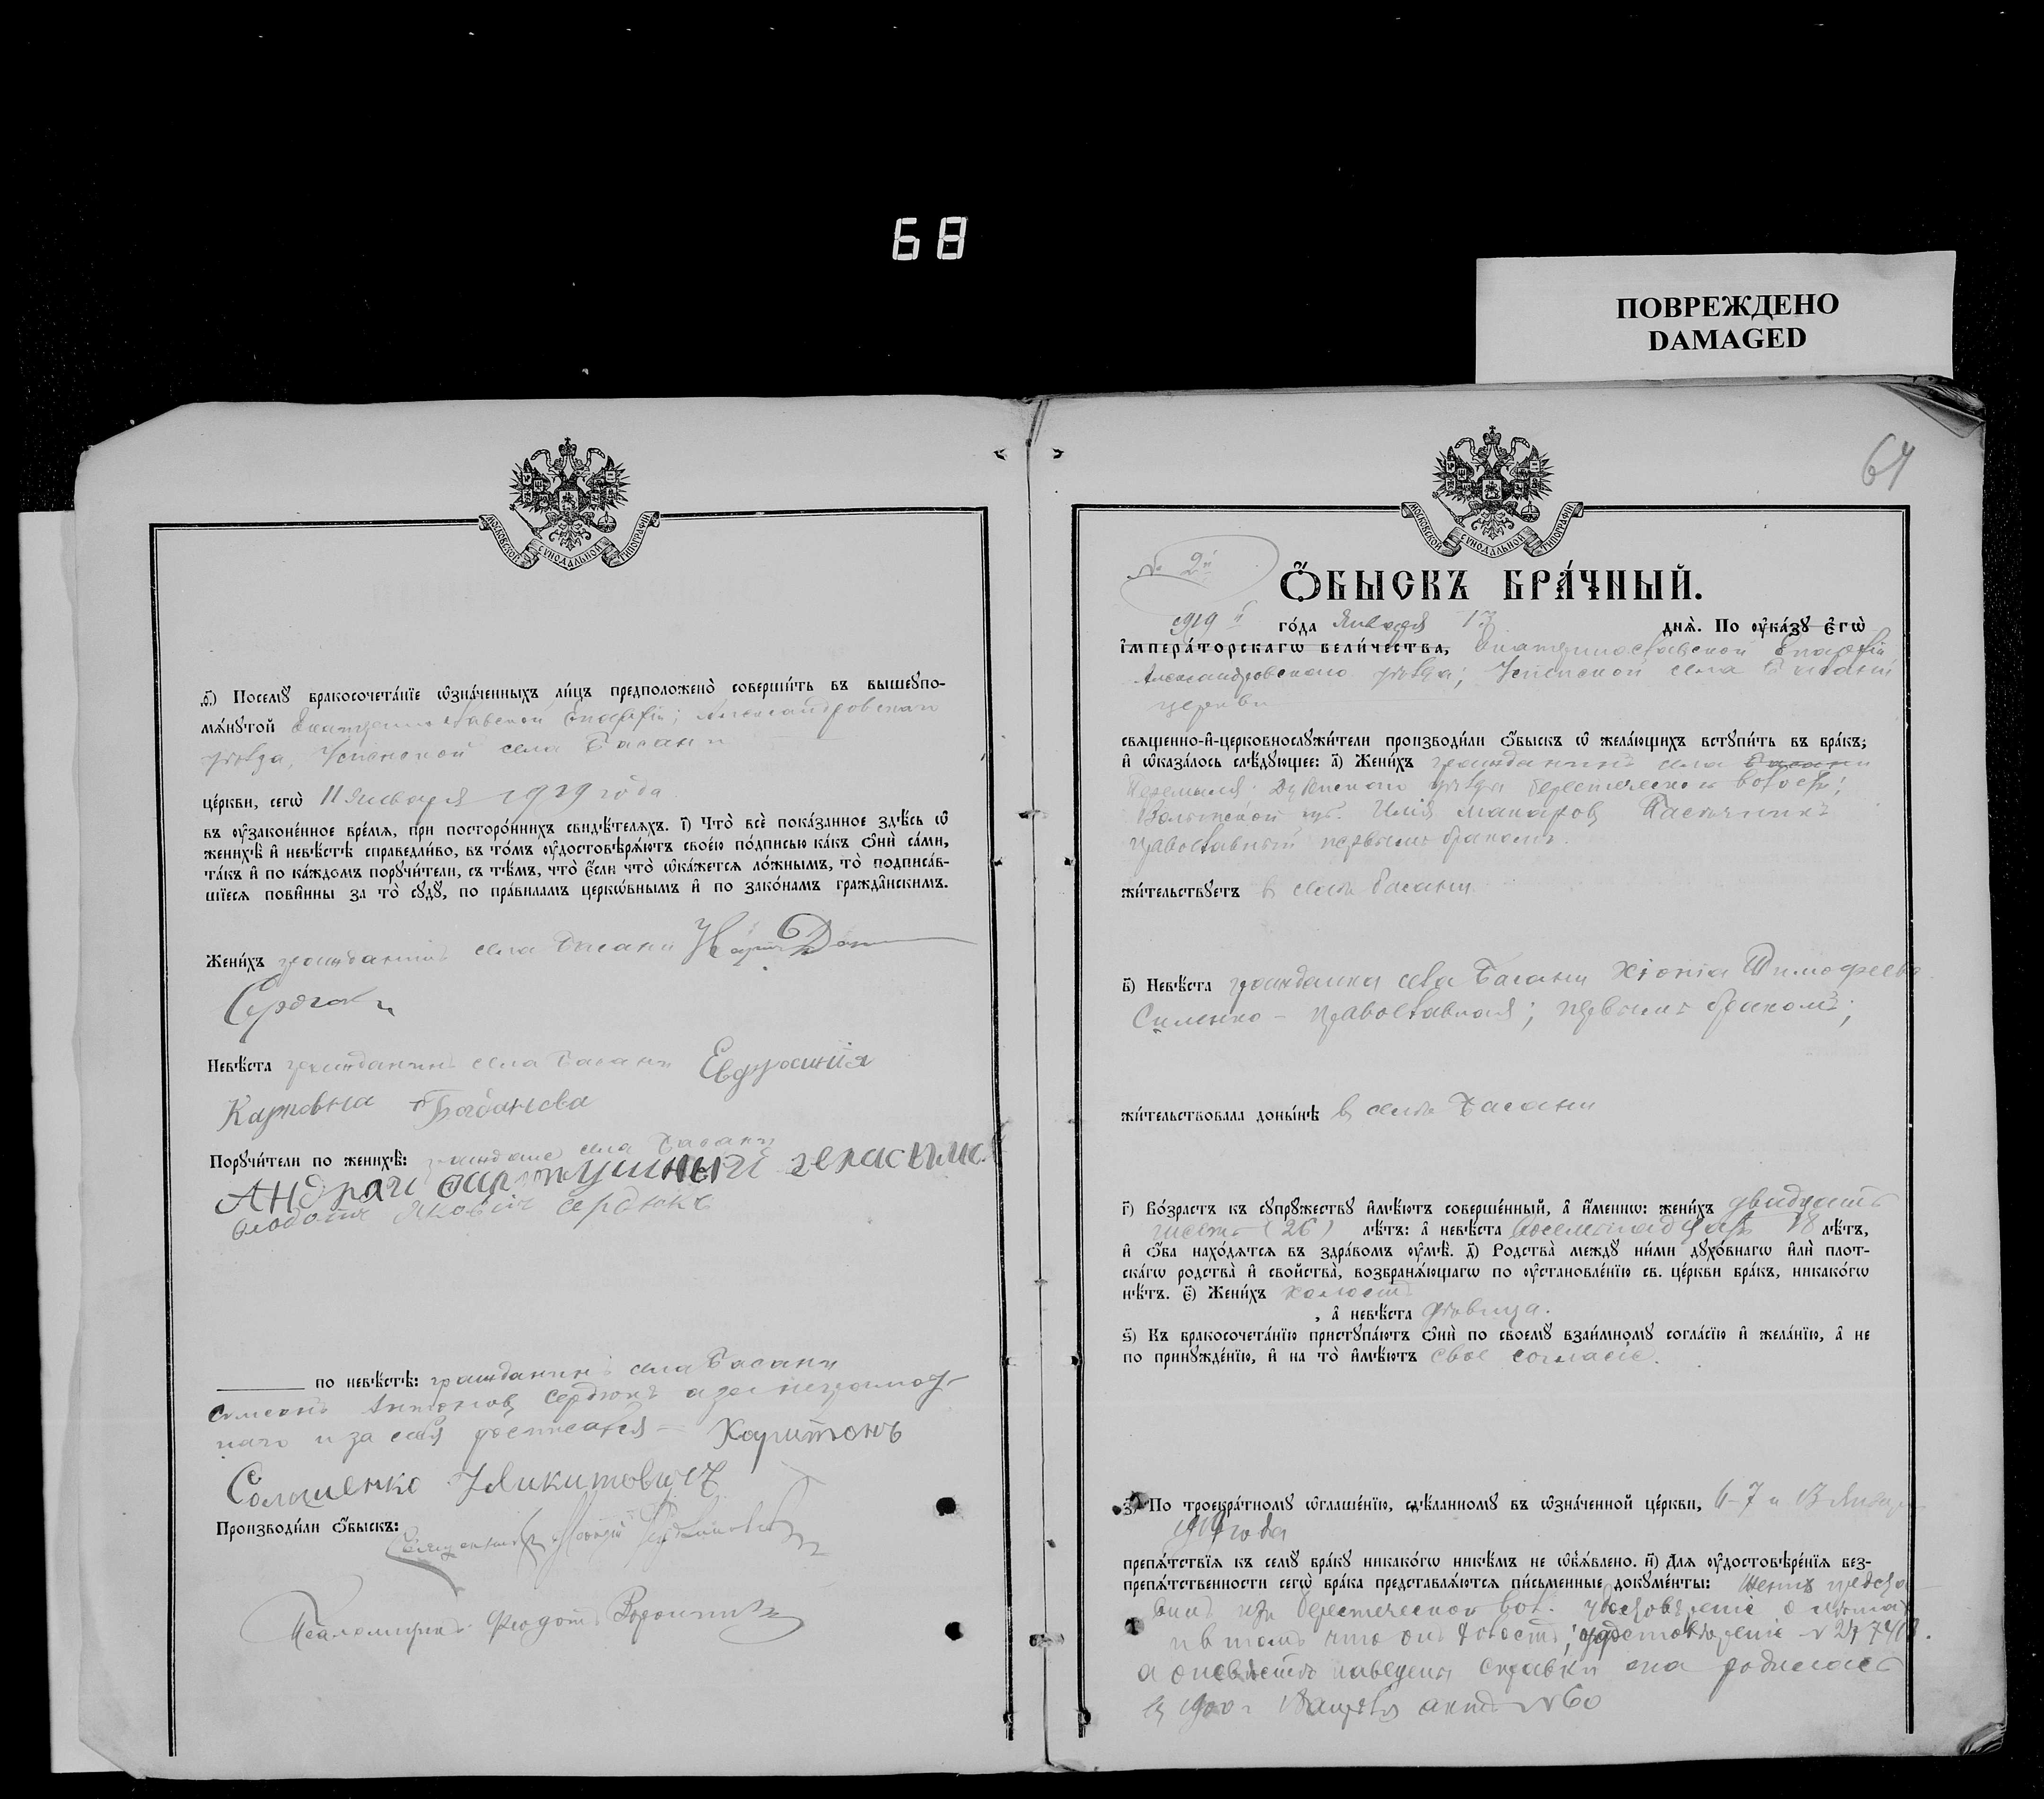 68
ПОВРЕЖДЕНО
DAMAGED
МОСКОВСКОЙ СУНОДАЛЬНОЙ ТИПОГРАФІИ
з҃) Посемꙋ бракосочета́нїе ѡ҆зна́ченныхъ ли́цъ предположено̀ соверши́ть въ вышеупо-
мѧ́нꙋтой Екатеринославской Епархіи; Александровскаго
уѣзда, Успенской села Басани
це́ркви, сегѡ̀ 11 января 1919 года
въ ᲂу҆законе́нное вре́мѧ, при посторо́ннихъ свидѣ́телѧхъ. і҃) Что̀ всѐ пока́занное здѣ́сь ѡ҆
женихѣ̀ и҆ невѣ́стѣ справедли́во, въ то́мъ ᲂу҆достовѣрѧ́ютъ свое́ю по́дписью ка́къ ѻ҆нѝ са́ми,
та́къ и҆ по ка́ждомъ порꙋчи́тели, съ тѣ́мъ, что̀ є҆́сли что̀ ѡ҆ка́жетсѧ ло́жнымъ, то̀ подписа́в-
шїесѧ пови́нны за то̀ сꙋдꙋ̀, по пра́виламъ церко́внымъ и҆ по зако́намъ гражда́нскимъ.
Жени́хъ гражданинъ села Басани
Сердюкъ
Невѣ́ста гражданинъ села Басани Евдросинія
Карповна Богданова
Порꙋчи́тели по женихѣ̀: граждане села Басани
Андрей
Федотъ Яковичъ Сердюкъ
по невѣ́стѣ: гражданинъ села Басани
Симеонъ Антоновъ Сердюкъ а за неграмот-
наго и за себя росписался – Харитонъ
Солошенко Никитовичъ
Производи́ли ѻ҆́быскъ: Священникъ
Псаломщикъ Феодотъ
64
МОСКОВСКОЙ СУНОДАЛЬНОЙ ТИПОГРАФІИ
№ 2й
Ѻ҆́БЫСКЪ БРА́ЧНЫЙ.
1919 го́да Января 13 днѧ̀. По ᲂу҆ка́зꙋ Є҆гѡ̀
і҆мпера́торскагѡ вели́чества, Екатеринославской Епархіи
Александровскаго уѣзда; Успенской села Басани
церкви
свѧще́нно-и҆-церковнослꙋжи́тели производи́ли ѻ҆́быскъ ѡ҆ жела́ющихъ встꙋпи́ть въ бра́къ;
и҆ ѡ҆каза́лось слѣ́дꙋющее: а҃) Жени́хъ гражданинъ села Басани
Перемыля Дубенскаго уѣзда Берестеческой волости;
Волынской губ. Илія Макаровъ Пасѣчникъ
православный первымъ бракомъ.
жи́тельствꙋетъ в селѣ Басани
в҃) Невѣ́ста гражданка села Басани Хіонія Тимофеева
Силенко – православная; первымъ бракомъ;
жи́тельствовала доны́нѣ в селѣ Басани
г҃) Во́зрастъ къ сꙋпрꙋ́жествꙋ и҆мѣ́ютъ соверше́нный, а҆ и҆́менно: жени́хъ двадцать
шесть (26) лѣ́тъ: а҆ невѣ́ста восемнадцать 18 лѣ́тъ,
и҆ ѻ҆́ба нахо́дѧтсѧ въ здра́вомъ ᲂу҆мѣ̀. д҃) Родства̀ междꙋ ни́ми дꙋхо́внагѡ и҆лѝ плот-
ска́гѡ родства̀ и҆ сво́йства, возбранѧ́ющагѡ по ᲂу҆становле́нїю св. це́ркви бра́къ, никако́гѡ
нѣ́тъ. є҃) Жени́хъ холостъ
, а҆ невѣ́ста дѣвица.
ѕ҃) Къ бракосочета́нїю пристꙋпа́ютъ ѻ҆нѝ по своемꙋ̀ взаи́мномꙋ согла́сїю и҆ жела́нїю, а҆ не
по принꙋжде́нїю, и҆ на то̀ и҆мѣ́ютъ свое согласіе.
з҃) По троекра́тномꙋ ѡ҆глаше́нїю, сдѣ́ланномꙋ въ ѡ҆зна́ченной це́ркви, 6–7 и 13 Января
1919 года
препѧ́тствїѧ къ семꙋ̀ бра́кꙋ никако́гѡ никѣ́мъ не ѡ҆б̾ѧ́влено. и҃) Длѧ ᲂу҆достовѣре́нїѧ без-
препѧ́тственности сегѡ̀ бра́ка представлѧ́ютсѧ пи́сьменные докꙋме́нты: Женихъ предста-
вилъ изъ Берестеческой вол. удостовѣреніе о лѣтахъ
и в томъ что онъ холостъ; удостовѣреніе №
а о невѣстѣ наведены справки она родилась
въ 1900 г. актъ № 60